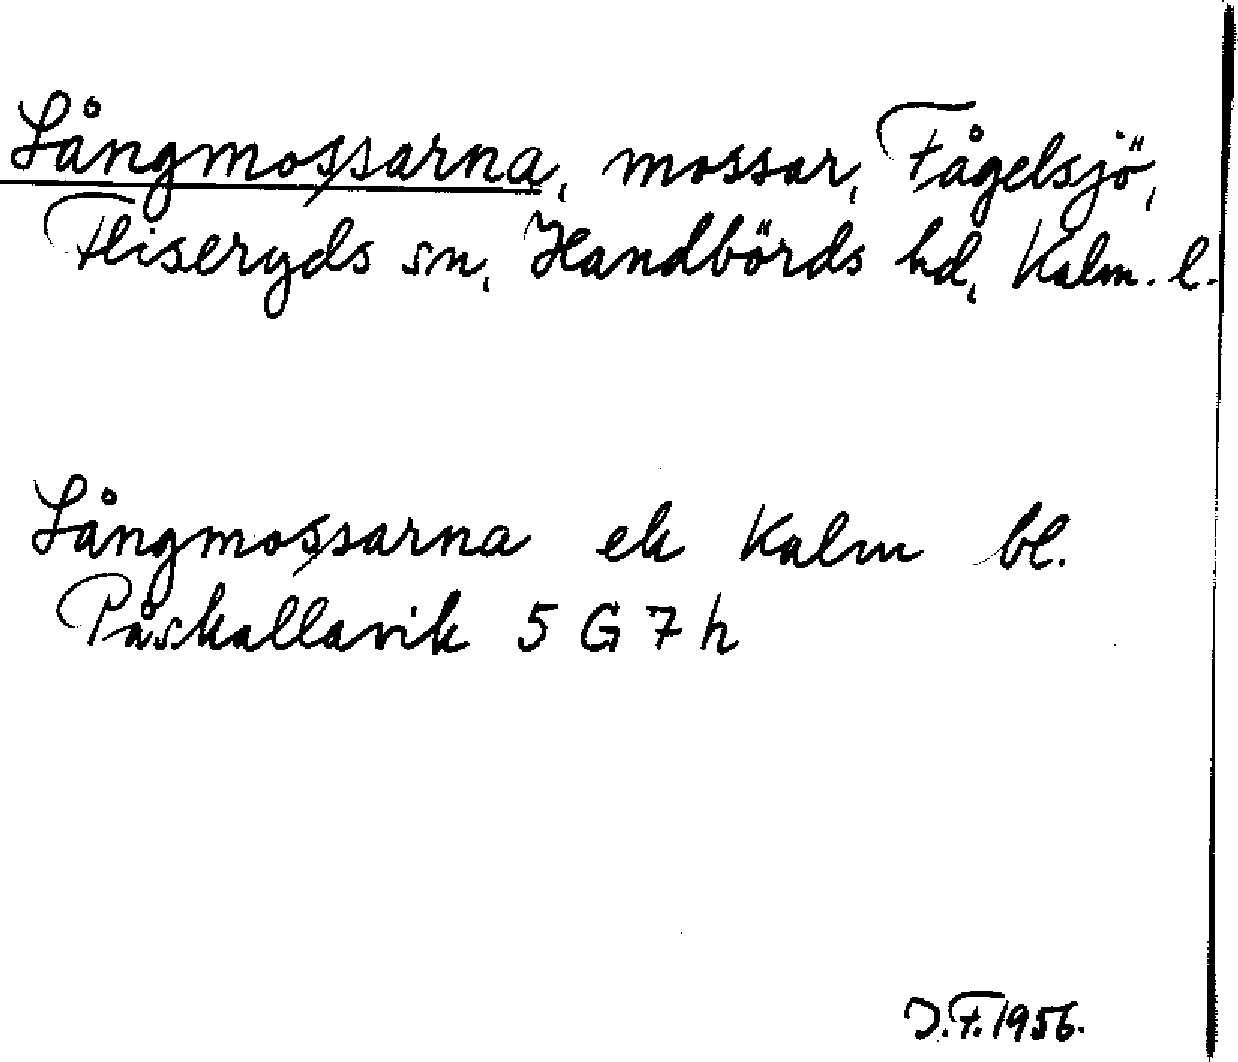 Långmossarna, mossar, Fågelsjö,
Fliseryds sn, Handbörds hd, Kalm. l.
Långmossarna ek Kalm bl.
Påskallavik 5 G 7 h
J.F. 1956.